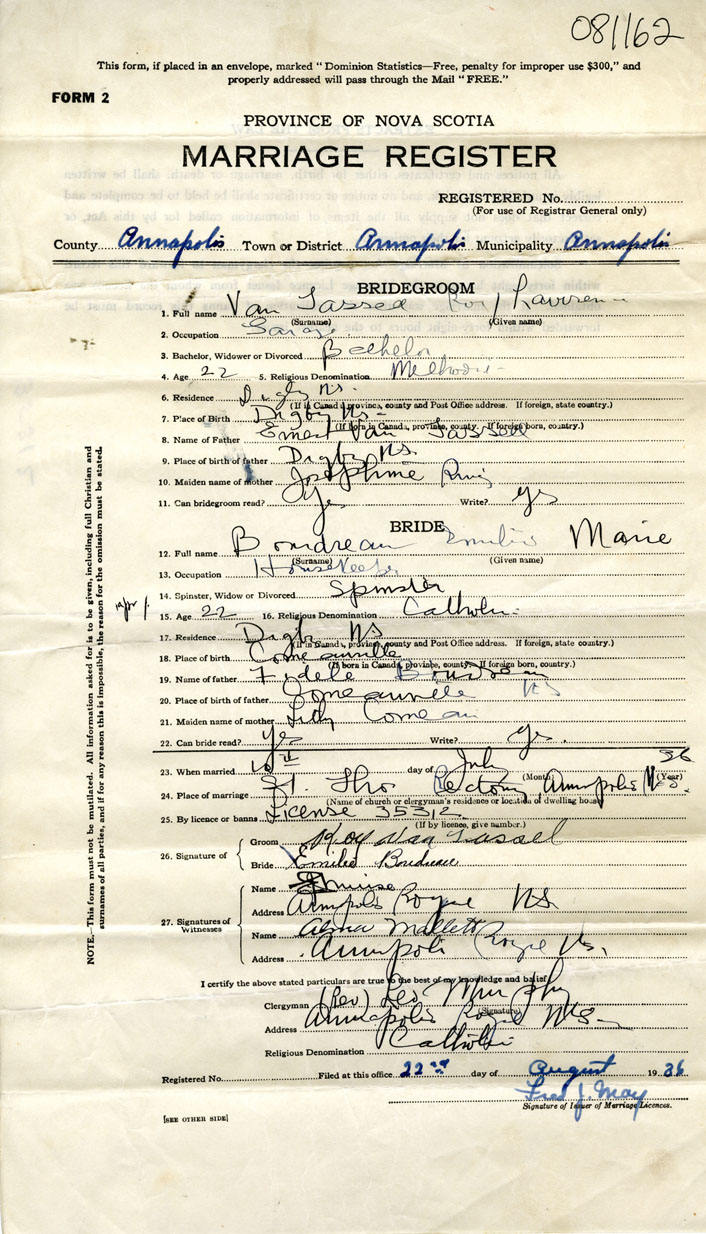 081162
This form, if placed in an envelope, marked "Dominion Statistics—Free, penalty for improper use $300," and
properly addressed will pass through the Mail "FREE."
FORM 2
PROVINCE OF NOVA SCOTIA
MARRIAGE REGISTER
REGISTERED No.
(For use of Registrar General only)
County Annapolis Town or District Annapolis Municipality Annapolis
BRIDEGROOM
1. Full name Van Tassell Roy
(Surname) (Given name)
2. Occupation
3. Bachelor, Widower or Divorced Bachelor
4. Age 22 5. Religious Denomination
6. Residence Digby NS.
(If in Canada province, county and Post Office address. If foreign, state country.)
7. Place of Birth Digby NS
(If born in Canada, province, county. If foreign born, country.)
8. Name of Father Ernest Van Tassell
9. Place of birth of father Digby NS.
10. Maiden name of mother Josephine
11. Can bridegroom read? Yes Write? Yes
BRIDE
12. Full name Boudreau Emilie Marie
(Surname) (Given name)
13. Occupation Housekeeper
14. Spinster, Widow or Divorced Spinster
15. Age 22 16. Religious Denomination Catholic
17. Residence Digby NS
(If in Canada, province, county and Post Office address. If foreign, state country.)
18. Place of birth Comeauville
(If born in Canada, province, county. If foreign born, country.)
19. Name of father Fidele Boudreau
20. Place of birth of father Comeauville NS
21. Maiden name of mother Comeau
22. Can bride read? Yes Write? Yes.
23. When married day of July 36
(Month) (Year)
24. Place of marriage St. Thos Rectory Annapolis N.S.
(Name of church or clergyman's residence or location of dwelling house)
25. By licence or banns License 35312
(If by licence, give number.)
26. Signature of
Groom Roy Van Tassell
Bride Emilie Boudreau
27. Signatures of Witnesses
Name
Address Annapolis Royal NS.
Name Alma Mallett
Address Annapolis Royal NS.
I certify the above stated particulars are true to the best of my knowledge and belief.
Clergyman (Rev) Leo Murphy
(Signature)
Address Annapolis Royal NS
Religious Denomination Catholic
Registered No. Filed at this office 22nd day of August 19 36
Fred J. May
Signature of Issuer of Marriage Licences.
[SEE OTHER SIDE]
NOTE.—This form must not be mutilated. All information asked for is to be given, including full Christian and
surnames of all parties, and if for any reason this is impossible, the reason for the omission must be stated.